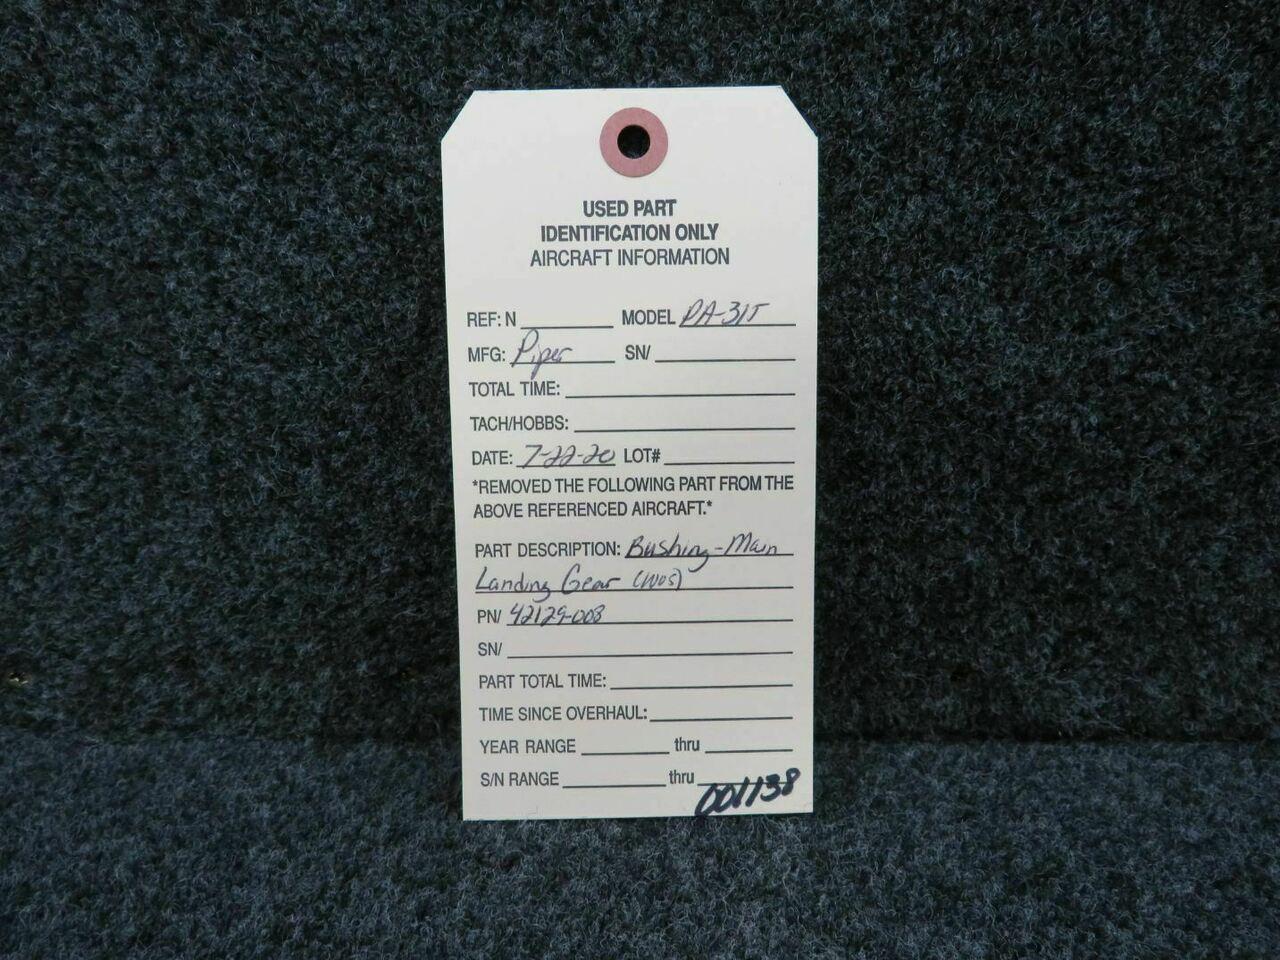 USED PART
IDENTIFICATION ONLY
AIRCRAFT INFORMATION
REF: N MODEL PA-31T
MFG: Piper SN/
TOTAL TIME:
TACH/HOBBS:
DATE: 7-22-20 LOT#
*REMOVED THE FOLLOWING PART FROM THE
ABOVE REFERENCED AIRCRAFT.*
PART DESCRIPTION: Bushing-Main
Landing Gear (NOS)
PN/ 42129-008
SN/
PART TOTAL TIME:
TIME SINCE OVERHAUL:
YEAR RANGE thru
S/N RANGE thru
001138